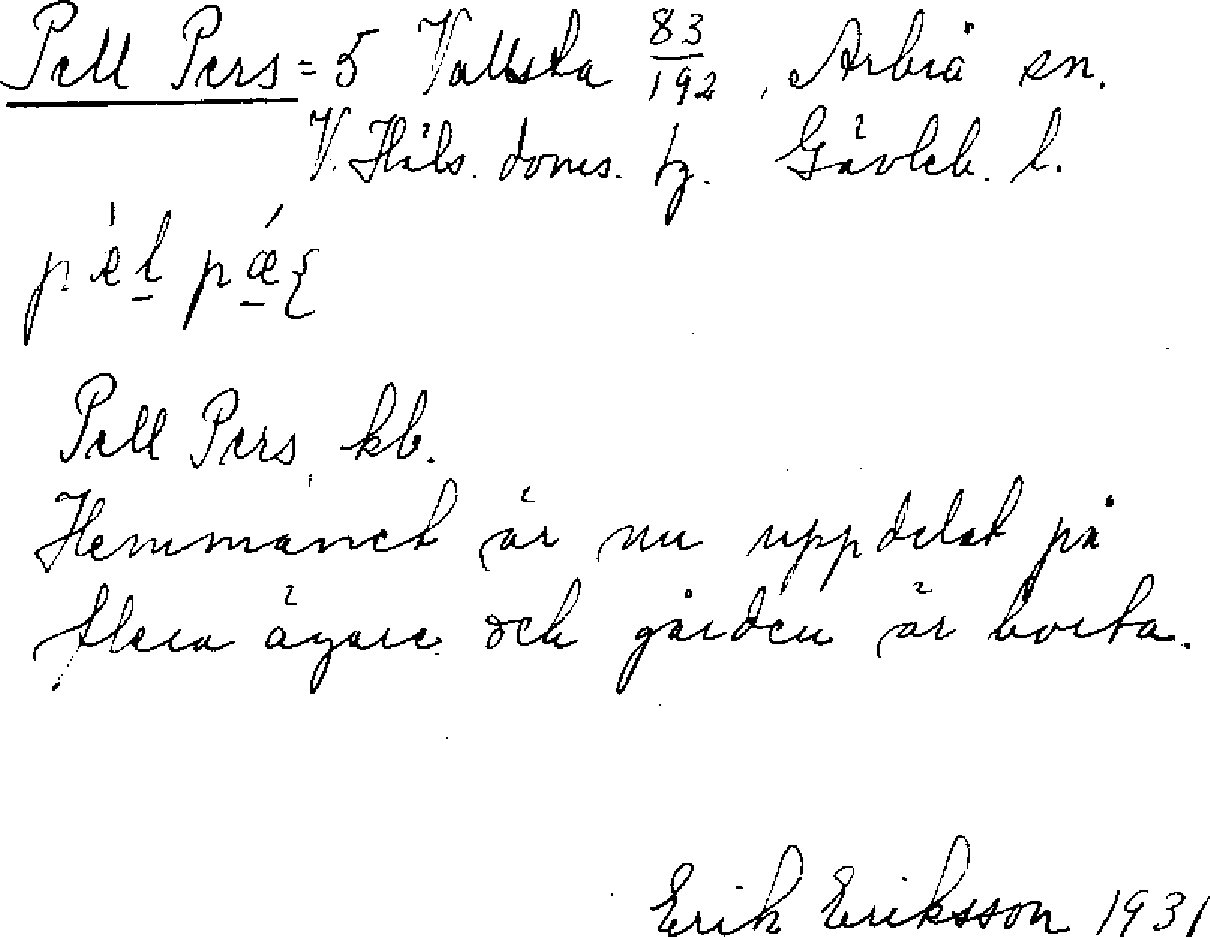 Pell Pers = 5 Vallsta 83/192, Arbrå sn.
V. Häls. doms. fg. Gävleb. l.
Pell Pers, kb.
Hemmanet är nu uppdelat på
flera ägare och gården är borta.
Erik Eriksson 1931